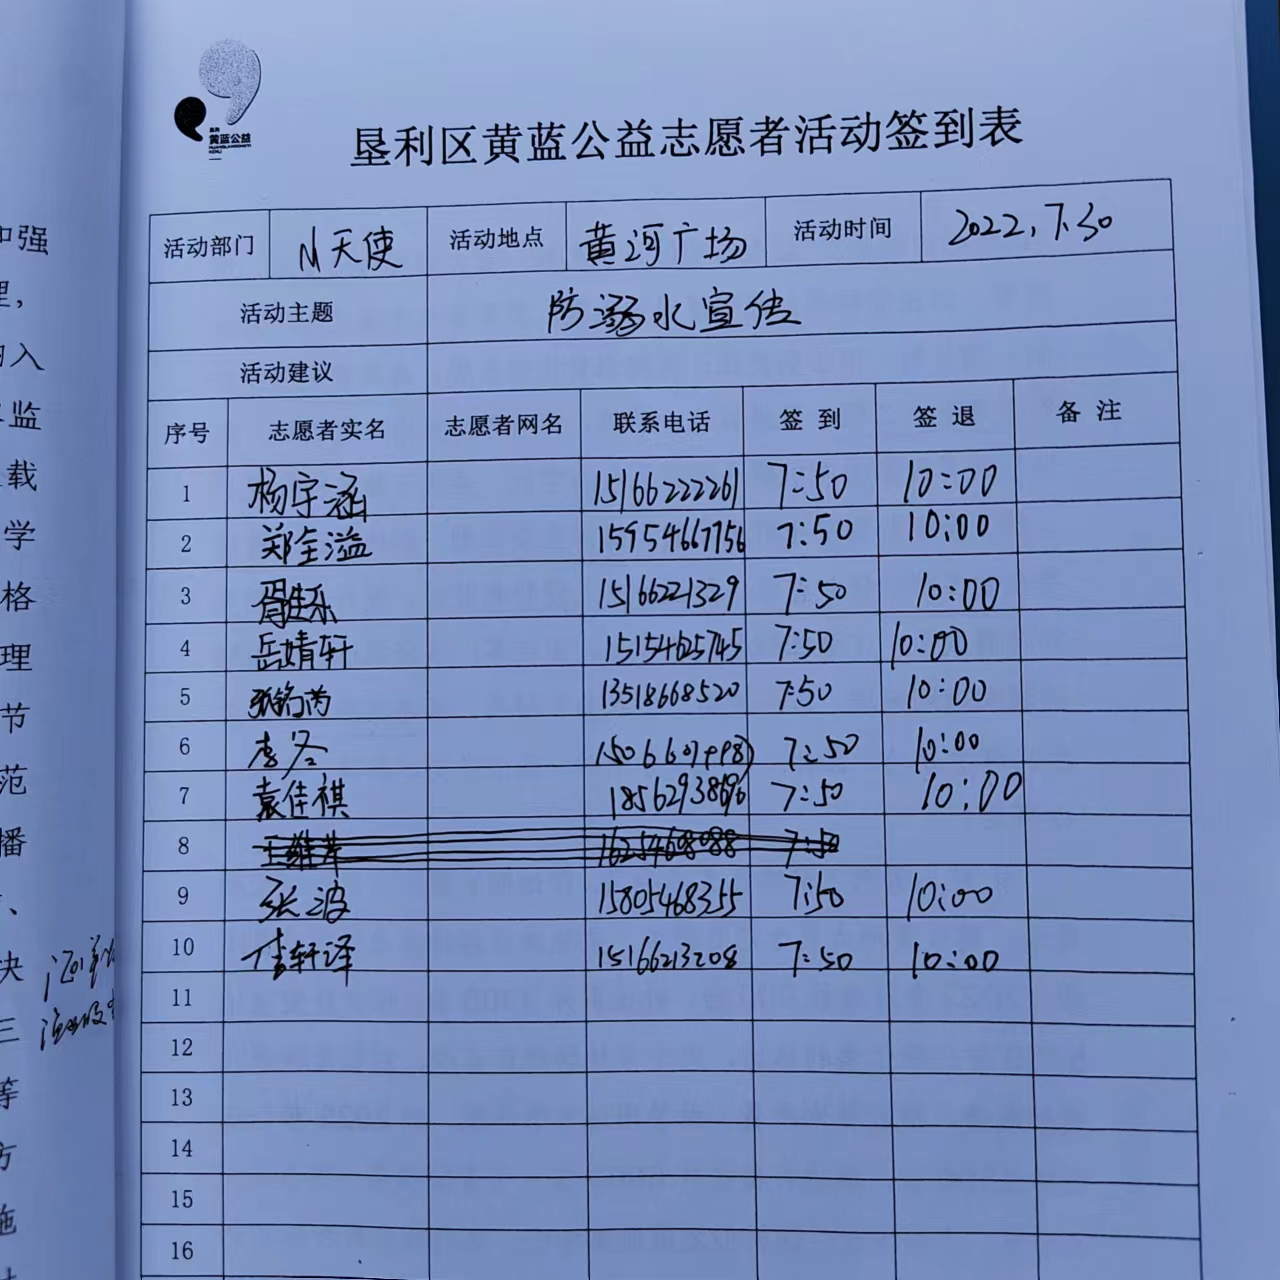 黄蓝公益
垦利区黄蓝公益志愿者活动签到表
活动部门 小天使 活动地点 黄河广场 活动时间 2022.7.30
活动主题 防溺水宣传
活动建议
序号 志愿者实名 志愿者网名 联系电话 签到 签退 备注
1 杨宇涵 15166222261 7:50 10:00
2 郑全溢 15954667756 7:50 10:00
3 15166221329 7:50 10:00
4 岳婧轩 15154625745 7:50 10:00
5 13518668520 7:50 10:00
6 李冬 7:50 10:00
7 袁佳祺 18562938696 7:50 10:00
8 7:50
9 张波 15805468355 7:50 10:00
10 佳轩泽 15166213208 7:50 10:00
11
12
13
14
15
16
强
理，
入
监
载
学
格
理
节
范
播
、
决
三
等
方
施